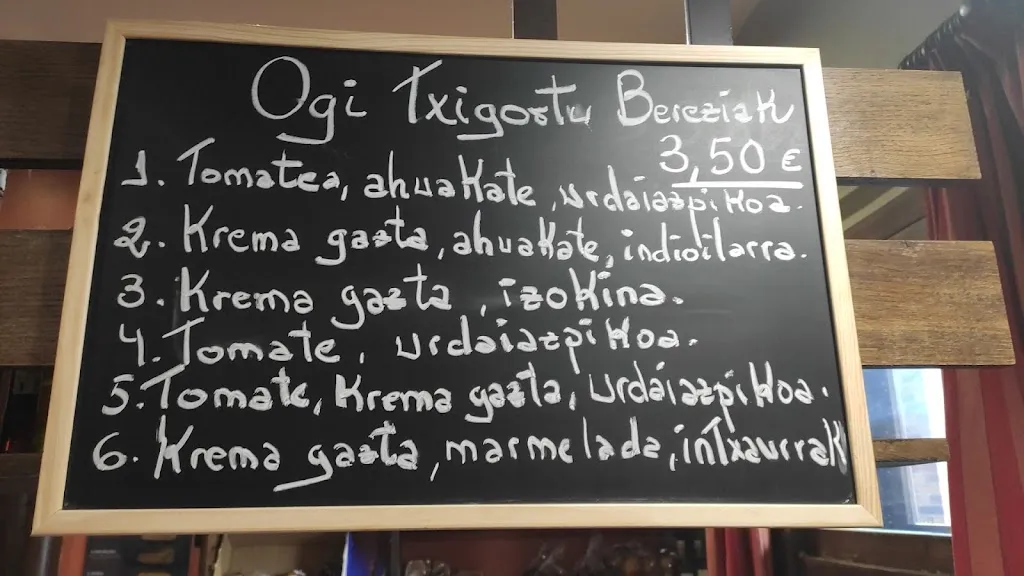 Ogi Txigortu Bereziak
3,50 €
1. Tomatea, ahuakate, urdaiazpikoa.
2. Krema gazta, ahuakate, indioilarra.
3. Krema gazta, izokina.
4. Tomate, urdaiazpikoa.
5. Tomate, Krema gazta, urdaiazpikoa.
6. Krema gazta, marmelada, intxaurrak